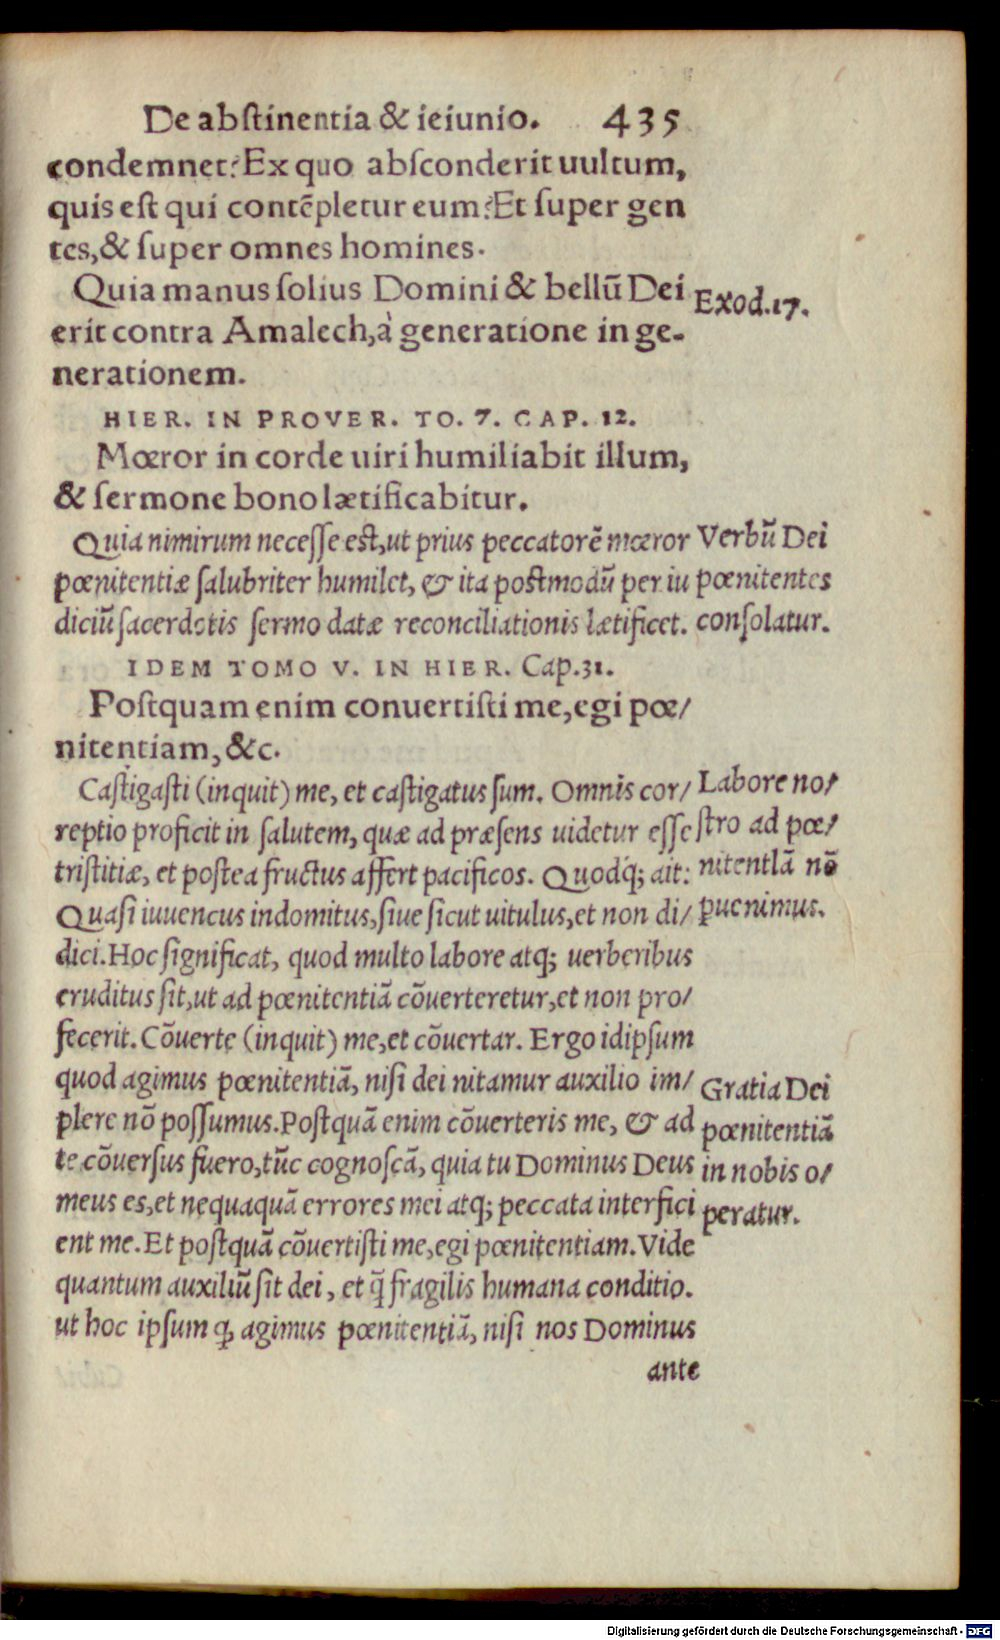 De abstinentia & ieiunio. 435
condemnet? Ex quo absconderit uultum,
quis est qui contēpletur eum? Et super gen
tes, & super omnes homines.
Quia manus solius Domini & bellū Dei
erit contra Amalech, à generatione in ge-
nerationem.
Exod.17.
HIER. IN PROVER. TO. 7. CAP. 12.
Mœror in corde uiri humiliabit illum,
& sermone bono lætificabitur.
Quia nimirum necesse est, ut prius peccatorē mœror
pœnitentiæ salubriter humilet, & ita postmodū per iu
diciū sacerdotis sermo datæ reconciliationis lætificet.
Verbū Dei
pœnitentes
consolatur.
IDEM TOMO V. IN HIER. Cap.31.
Postquam enim conuertisti me, egi pœ/
nitentiam, &c.
Castigasti (inquit) me, et castigatus sum. Omnis cor/
reptio proficit in salutem, quæ ad præsens uidetur esse
tristitiæ, et postea fructus affert pacificos. Quodq́; ait:
Quasi iuuencus indomitus, siue sicut uitulus, et non di/
dici. Hoc significat, quod multo labore atq; uerberibus
eruditus sit, ut ad pœnitentiā cōuerteretur, et non pro/
fecerit. Cōuerte (inquit) me, et cōuertar. Ergo idipsum
quod agimus pœnitentiā, nisi dei nitamur auxilio im/
plere nō possumus. Postquā enim cōuerteris me, & ad
te cōuersus fuero, tūc cognoscā, quia tu Dominus Deus
meus es, et nequaquā errores mei atq; peccata interfici
ent me. Et postquā cōuertisti me, egi pœnitentiam. Vide
quantum auxiliū sit dei, et q̄ fragilis humana conditio.
ut hoc ipsum ꝙ agimus pœnitentiā, nisi nos Dominus
Labore no/
stro ad pœ/
nitentiā nō
ꝑuenimus.
Gratia Dei
pœnitentiā
in nobis o/
peratur.
ante
Digitalisierung gefördert durch die Deutsche Forschungsgemeinschaft - DFG